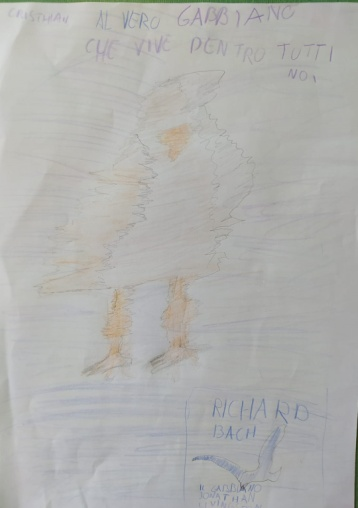 CRISTIAN
AL VERO GABBIANO
CHE VIVE DENTRO TUTTI
NOI
RICHARD
BACH
IL GABBIANO
JONATHAN